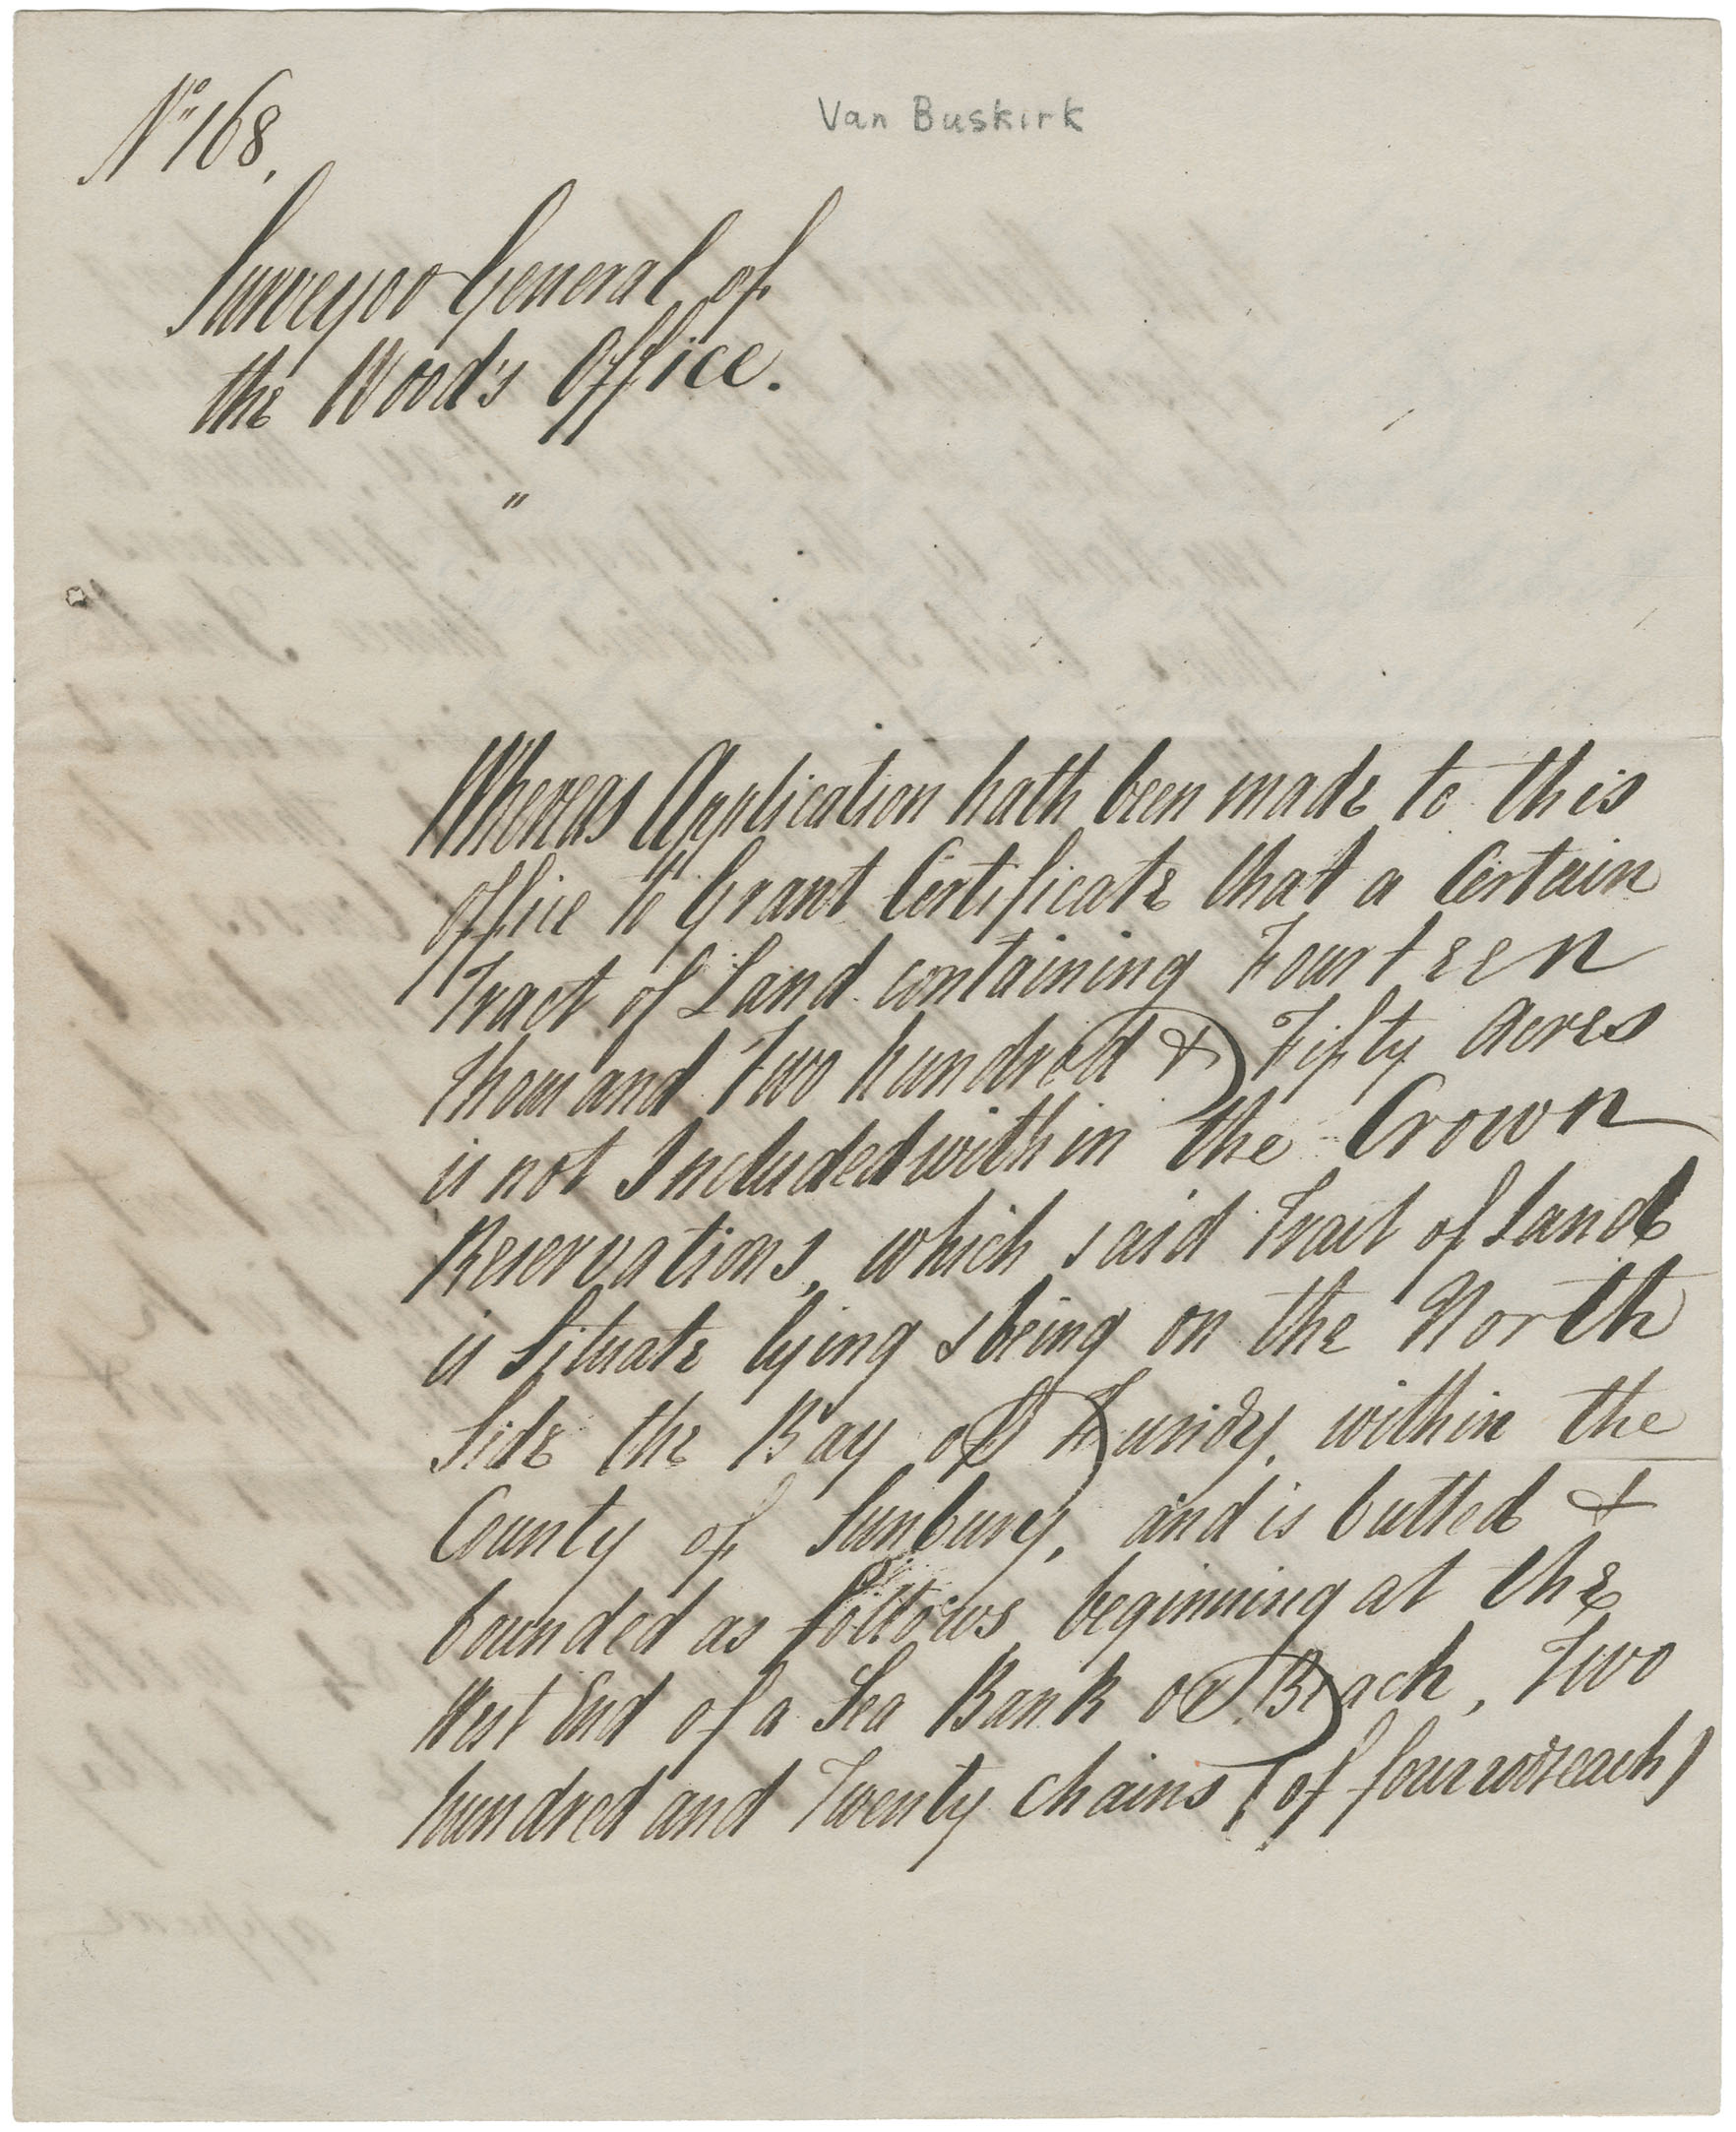 No 168.
Van Buskirk
Surveyor General of
the Wood's Office.
"
Whereas Application hath been made to this
Office to Grant Certificate that a Certain
Tract of Land containing Fourteen
thousand Two hundred & Fifty Acres
is not Included within the Crown
Reservations, which said Tract of Land
is Situate lying & being on the North
Side the Bay of Fundy, within the
County of Sunbury, and is butted &
bounded as follows, beginning at the
West End of a Sea Bank or Beach, Two
hundred and Twenty chains (of four rods each)